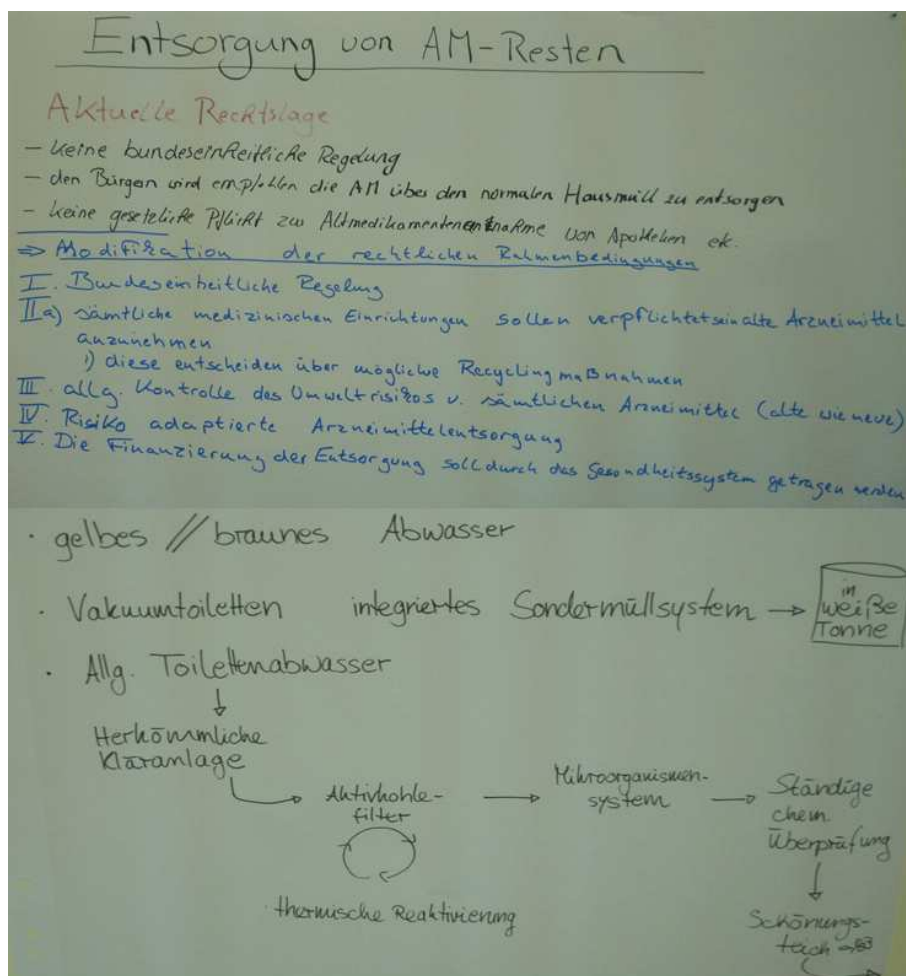 Entsorgung von AM-Resten
Aktuelle Rechtslage
- keine bundeseinheitliche Regelung
- den Bürgern wird empfohlen die AM über den normalen Hausmüll zu entsorgen
- keine gesetzliche Pflicht zur Altmedikamenten von Apotheken
⇒ Modifikation der rechtlichen Rahmenbedingungen
I. Bundeseinheitliche Regelung
II a) sämtliche medizinischen Einrichtungen sollen verpflichtet sein alte Arzneimittel
anzunehmen
1) diese entscheiden über mögliche Recyclingmaßnahmen
III. allg. Kontrolle des Umweltrisikos v. sämtlichen Arzneimittel (alte wie neue)
IV. Risiko adaptierte Arzneimittelentsorgung
V. Die Finanzierung der Entsorgung soll durch das Gesundheitssystem getragen werden
· gelbes // braunes Abwasser
· Vakuumtoiletten integriertes Sondermüllsystem → in
weiße
Tonne
· Allg. Toilettenabwasser
↓
Herkömmliche
Kläranlage
→ Aktivkohle-
filter
thermische Reaktivierung
→ Mikroorganismen-
system
→ Ständige
chem.
Überprüfung
↓
Schönungs-
teich